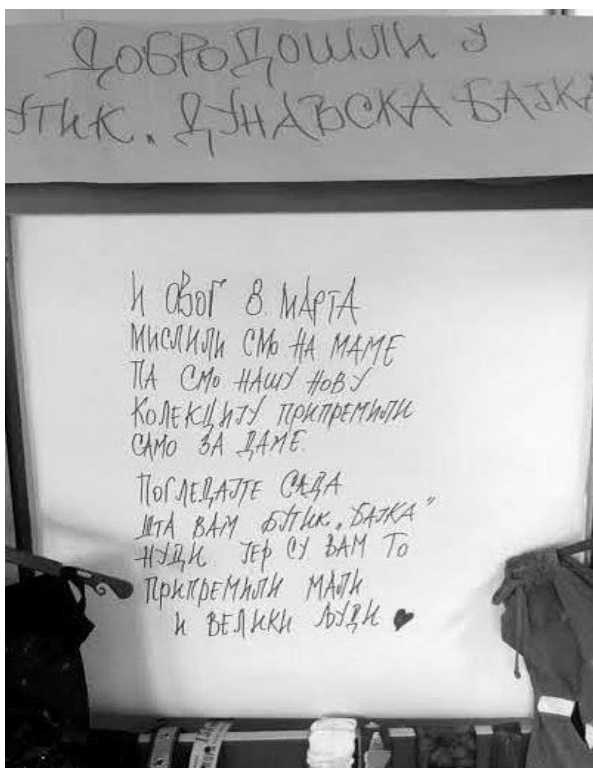 ДОБРОДОШЛИ У
УТИК. ДУНАВСКА БАЈКА
И ОВОГ 8. МАРТА
МИСЛИЛИ СМО НА МАМЕ
ПА СМО НАШУ НОВУ
КОЛЕКЦИЈУ ПРИПРЕМИЛИ
САМО ЗА ДАМЕ.
ПОГЛЕДАЈТЕ САДА
ШТА ВАМ БУТИК „БАЈКА"
НУДИ ЈЕР СУ ВАМ ТО
ПРИПРЕМИЛИ МАЛИ
И ВЕЛИКИ ЉУДИ